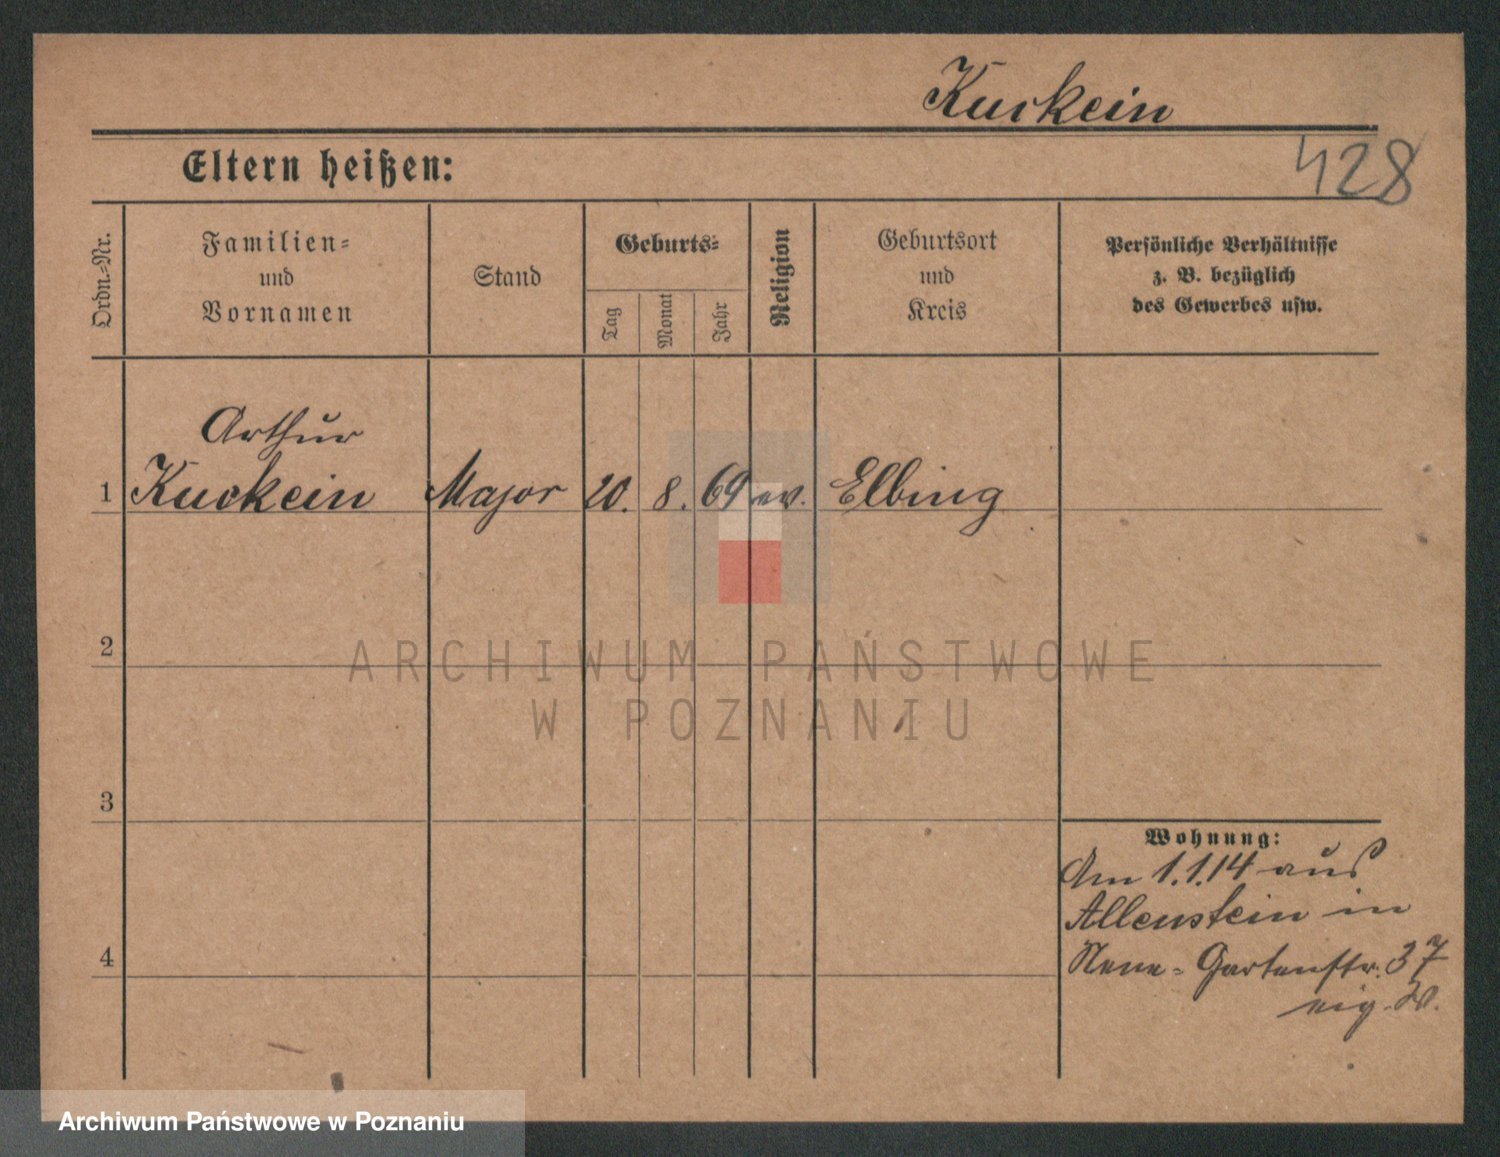 Kuckein
428
Eltern heißen:
Ordn.-Nr.
Familien-
und
Vornamen
Stand
Geburts-
Tag
Monat
Jahr
Religion
Geburtsort
und
Kreis
Persönliche Verhältnisse
z. B. bezüglich
des Gewerbes usw.
Arthur
1 Kuckein Major 20. 8. 69 ev. Elbing
2
ARCHIWUM PAŃSTWOWE
W POZNANIU
3
Wohnung:
Am 1.1.14 aus
Allenstein in
Neue-Gartenstr. 37
eig. W.
4
Archiwum Państwowe w Poznaniu